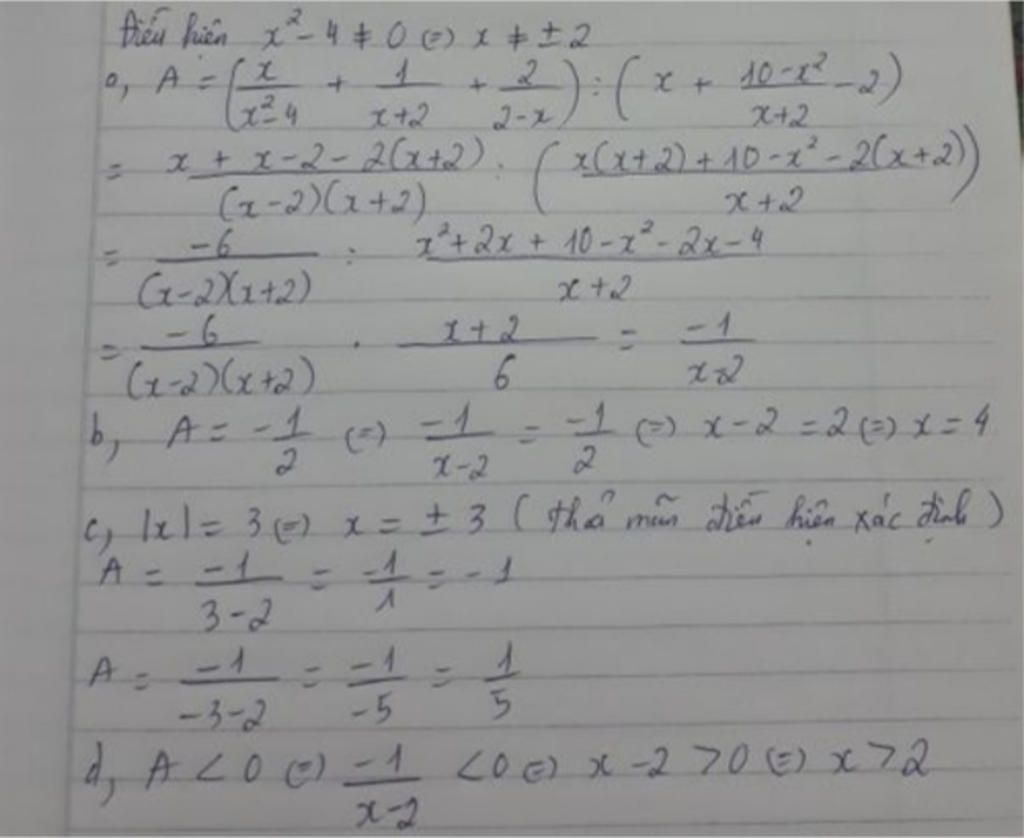 Điều kiện x² - 4 ≠ 0 (=) x ≠ ± 2
a, A = (x/(x²-4) + 1/(x+2) + 2/(2-x)) : (x + (10-x²)/(x+2) - 2)
= (x + x-2 - 2(x+2))/((x-2)(x+2)) : ((x(x+2) + 10-x² - 2(x+2))/(x+2))
= -6/((x-2)(x+2)) : (x²+2x + 10-x² - 2x-4)/(x+2)
= -6/((x-2)(x+2)) . (x+2)/6 = -1/(x-2)
b, A = -1/2 (=) -1/(x-2) = -1/2 (=) x-2 = 2 (=) x = 4
c, |x| = 3 (=) x = ± 3 (thoả mãn điều kiện xác định)
A = -1/(3-2) = -1/1 = -1
A = -1/(-3-2) = -1/-5 = 1/5
d, A < 0 (=) -1/(x-2) < 0 (=) x - 2 > 0 (=) x > 2